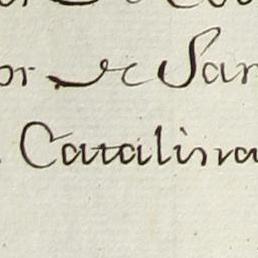 or de San
Catalina